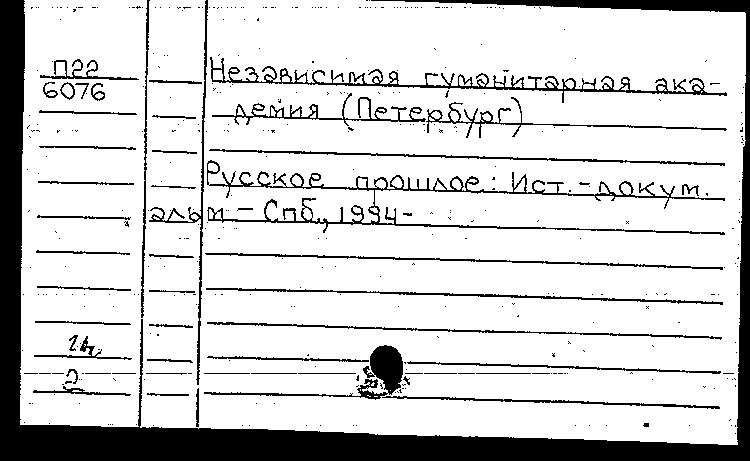 П22
6076
Независимая гуманитарная ака-
демия (Петербург)
Русское прошлое: Ист.-докум.
альм - Спб., 1994-
2